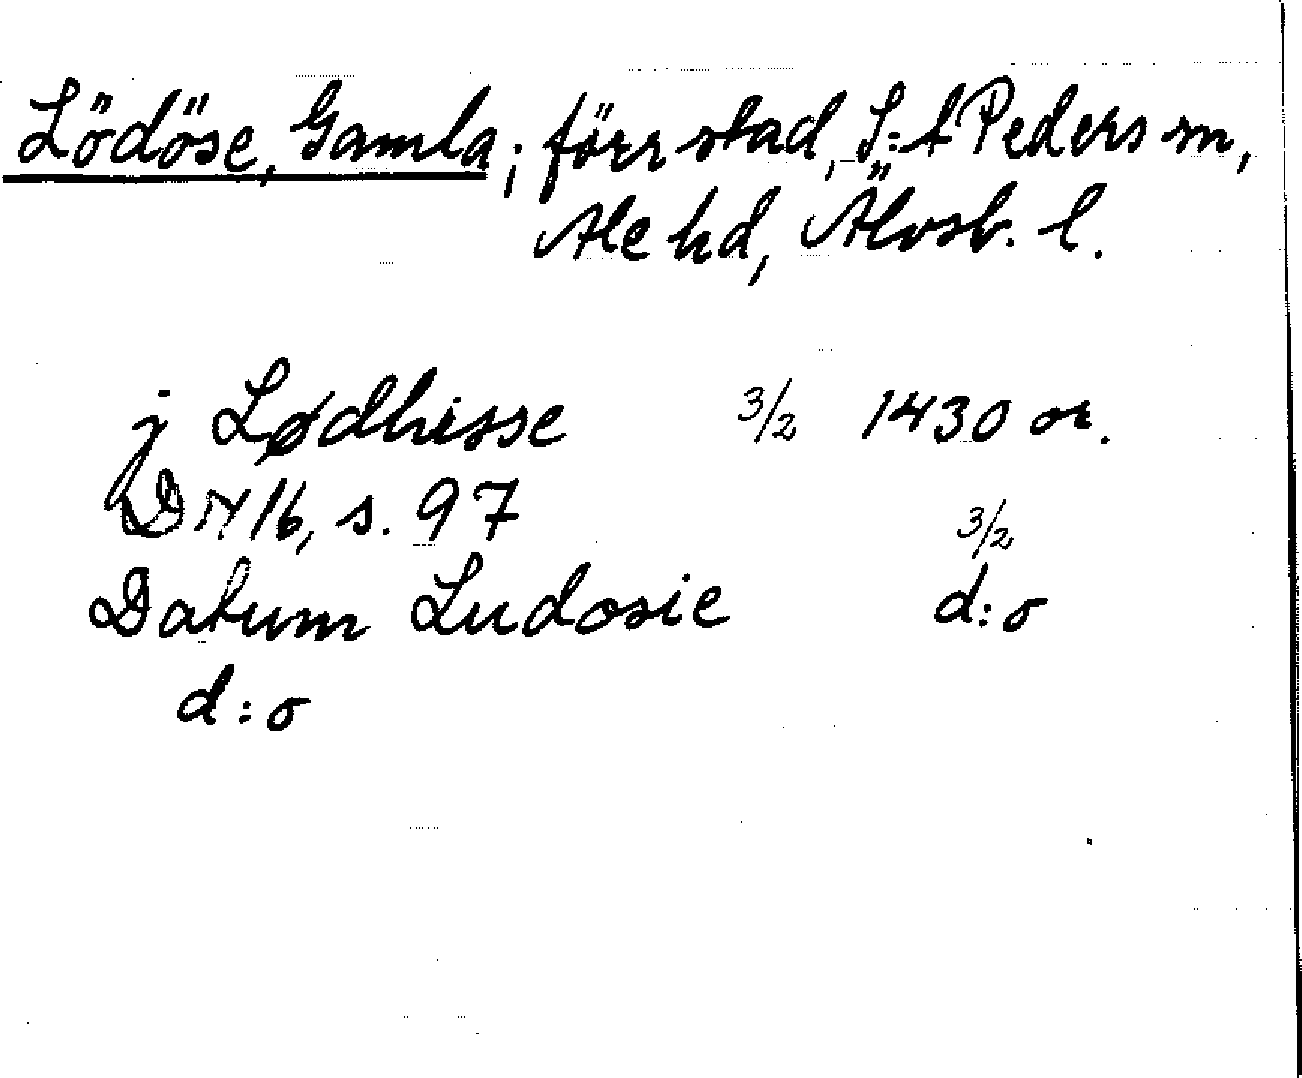 Lödöse, Gamla; förr stad, S:t Peders sn,
Ale hd, Älvsb. l.
j Lødhisse 3/2 1430 or.
DN 16, s. 97
Datum Ludosie 3/2 d:o
d:o